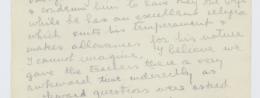 & condemn him to have only one wife
while he has an excellent religion
which suits his temperament &
makes allowances for his nature
I cannot imagine. I believe we
gave the teachers there a very
awkward time indirectly as
awkward questions were asked